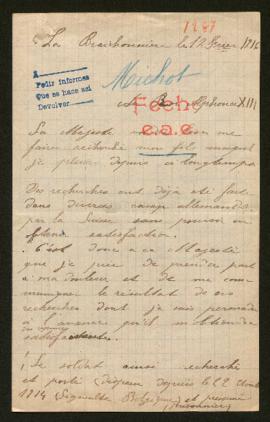 1197
La Braconnière le 12 Février 1916
A
Pedir informes
Que se hace así
Devolver
Michot
Roi Alphonse XIII
Fecho
e.a.c.
Sa Majesté
faire recherché mon fils
je pleure depuis si longtemps
Des recherches ont déjà été fait
dans divers camps allemands
par la Suisse sans pouvoir en
obtenir satisfaction.
C'est donc a sa Majesté
que je prie de prendre part
à ma douleur et de me com
muniquer le résultat de ses
recherches dont je suis persuadé
à l'avance qu'il m'obtiendra
satisfaction.
Le soldat aussi recherché
est porté disparu depuis le 22 Août
1914 Belgique et présumé
prisonnier